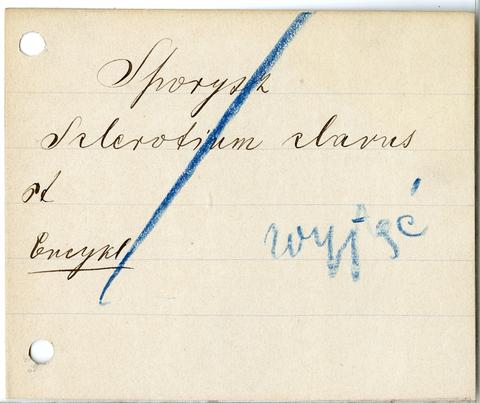 Sporysz
Sclerotium clavus
st
Encykl
wyjść